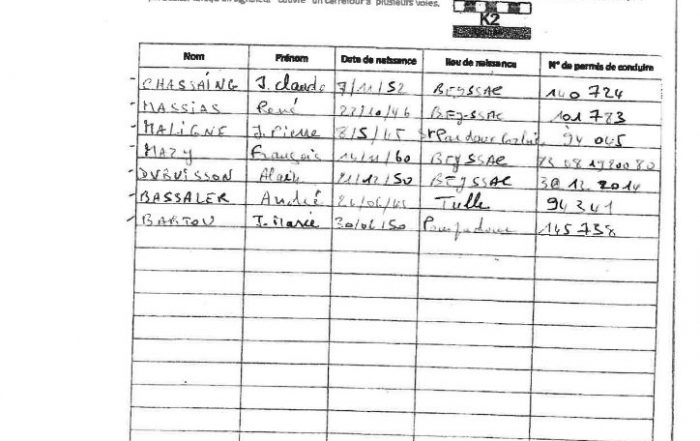 couvre un carrefour à plusieurs voies.
K2
Nom Prénom Date de naissance lieu de naissance N° de permis de conduire
- CHASSAING J. claude 7/11/52 BEYSSAC 140 724
- MASSIAS René /10/46 BEYSSAC 101 783
- MALIGNE J. Pierre 8/5/45 94 045
- MAZY François /60 BEYSSAC
- DUBUISSON Alain /12/50 BEYSSAC 30 12 2014
- BASSALER André /06/ Tulle 94 341
- BARTOU J. Marie 30/06/50 Pompadour 145 738